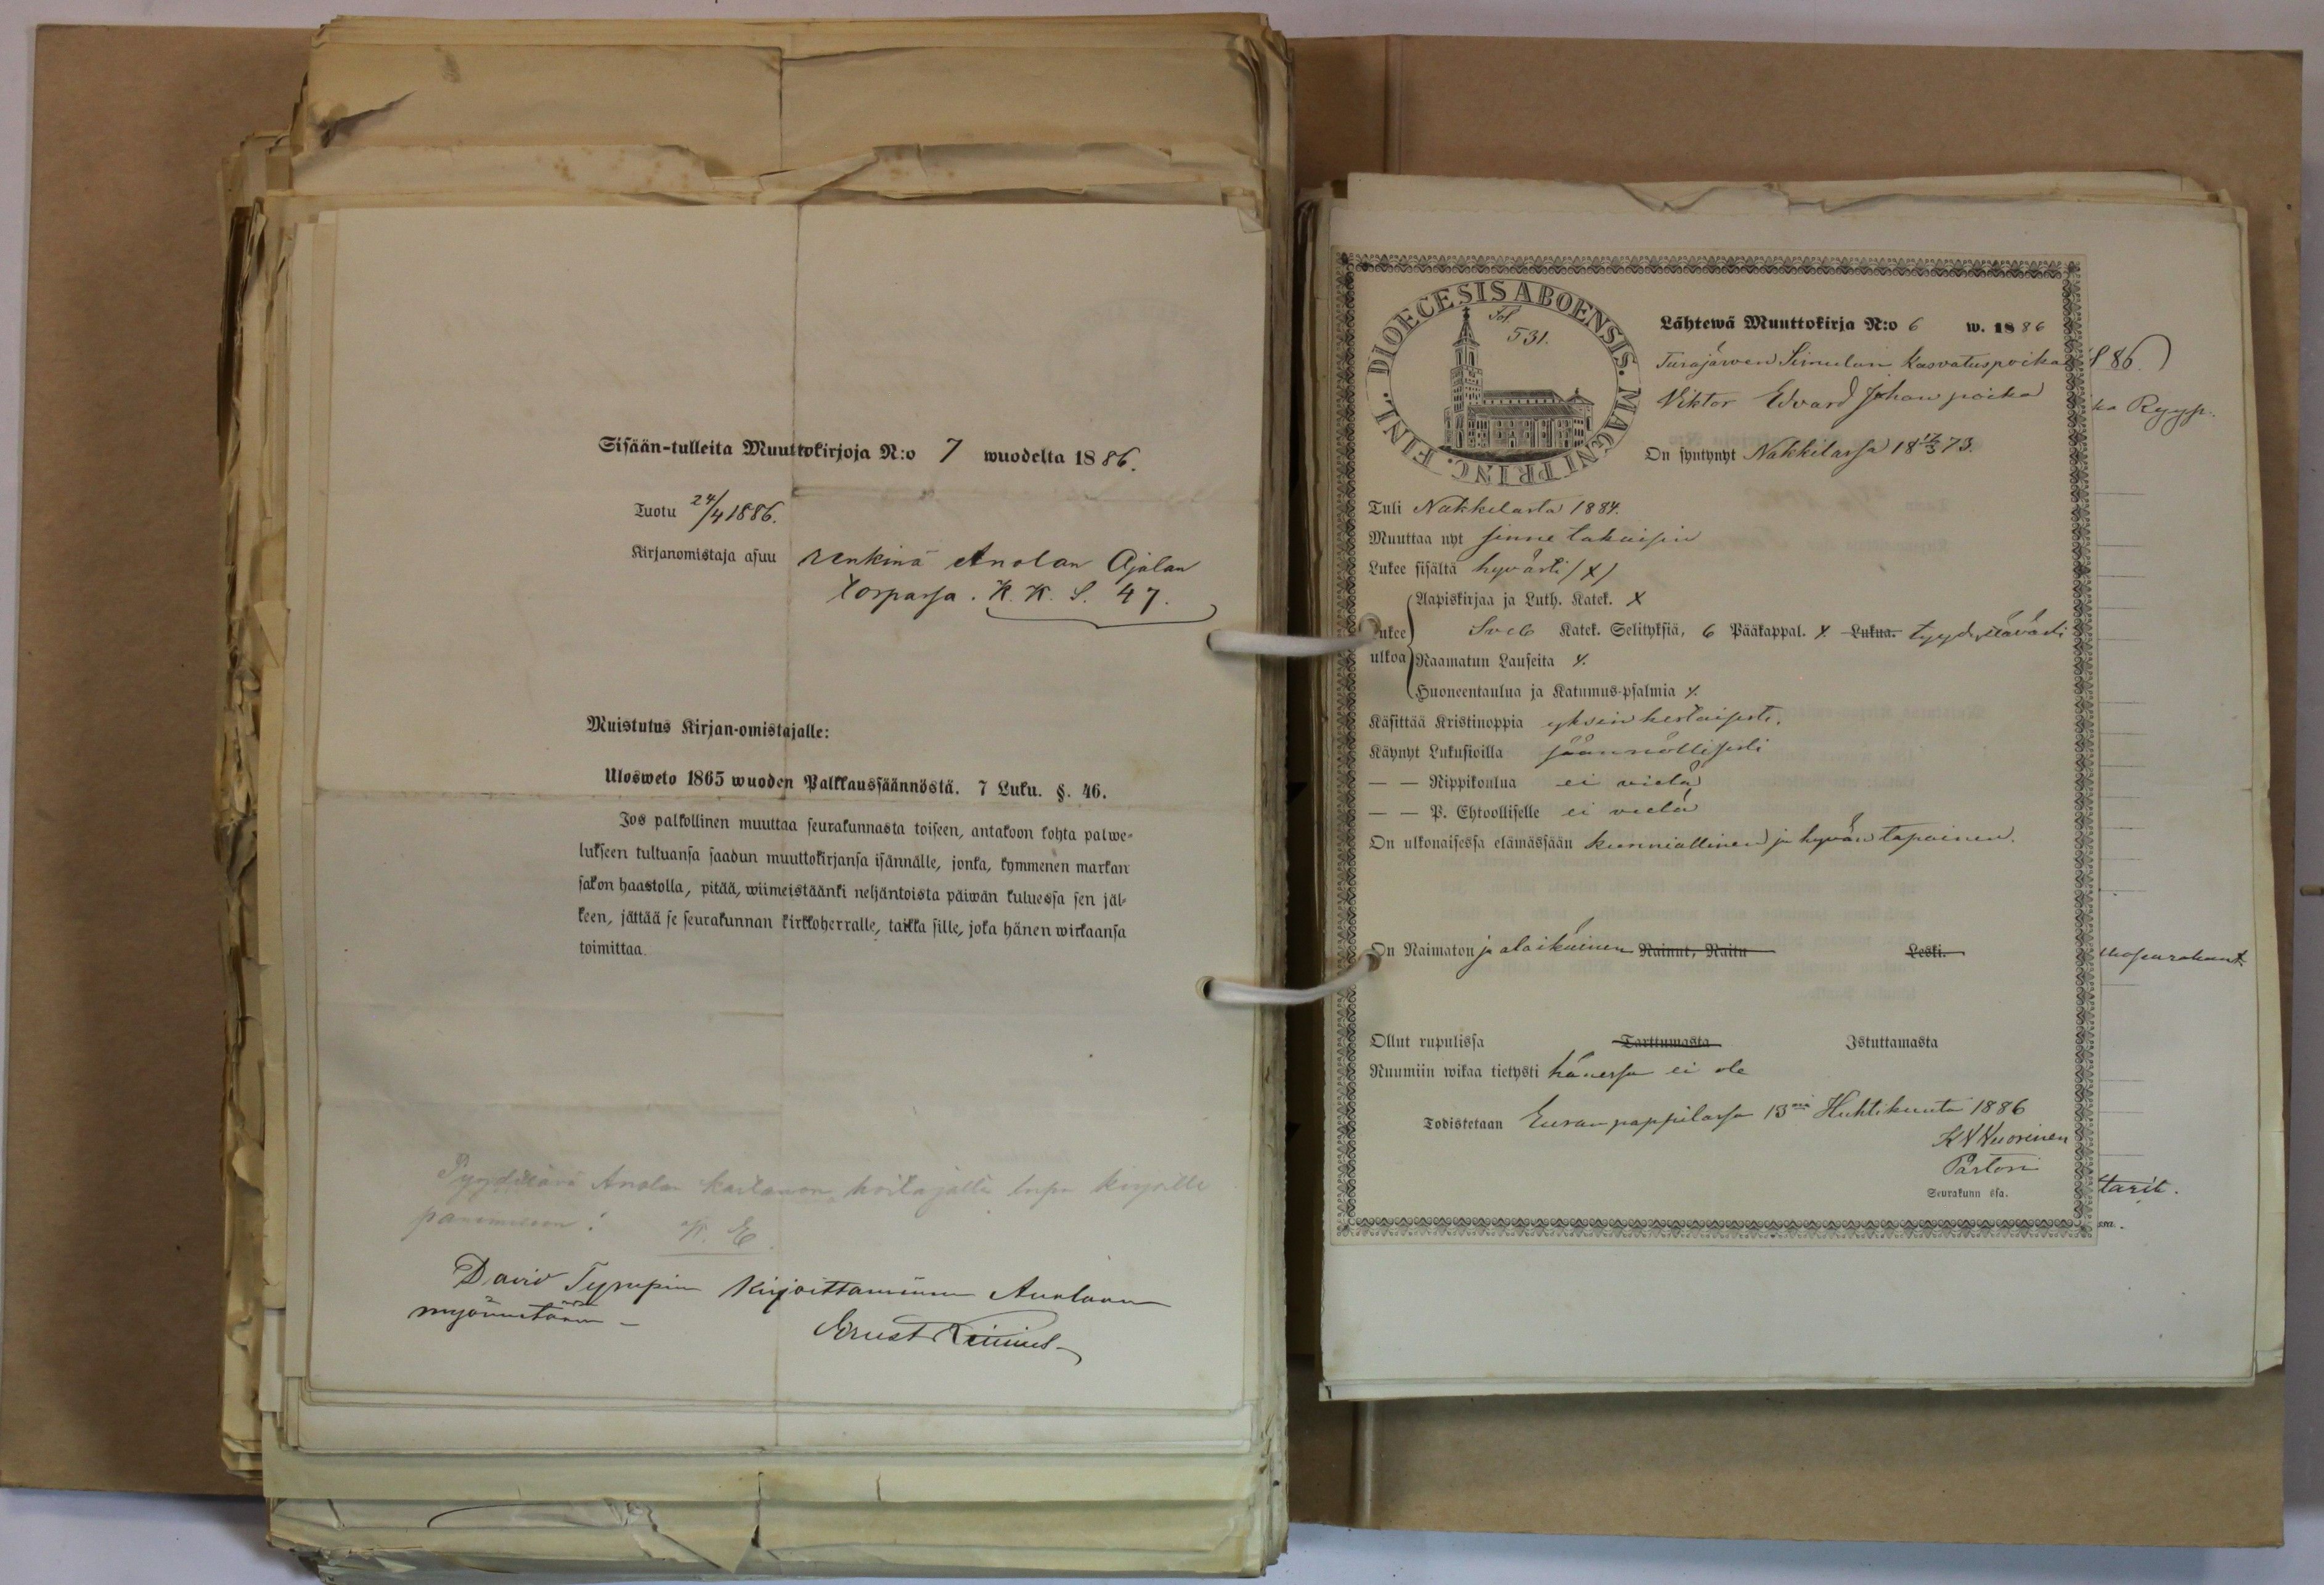 Sisään-tulleita Muuttokirjoja N:o 7 wuodelta 1886.
Tuotu 24/4 1886.
Kirjanomistaja asuu renkinä Anolan Ajalan
torpassa. K. K. S. 47.
Muistutus Kirjan-omistajalle:
Ulosweto 1865 wuoden Palkkaussäännöstä. 7 Luku. §. 46.
Jos palkollinen muuttaa seurakunnasta toiseen, antakoon kohta palwe-
lukseen tultuansa saadun muuttokirjansa isännälle, jonka, kymmenen markan
sakon haastolla, pitää, wiimeistäänki neljäntoista päiwän kuluessa sen jäl-
keen, jättää se seurakunnan kirkkoherralle, taikka sille, joka hänen wirkaansa
toimittaa.
Pyydetään Anolan kartanon hoitajalta lupa kirjoille
panemiseen:
David Tyrnpin Kirjoittamisen Anolaan
myönnetään
Ernst
DIOECESIS ABOENSIS. MAGNI PRINC. FINL.
Fol.
531.
Lähtewä Muuttokirja N:o 6 w. 1886
Turajärwen Simulan kasvatuspoika
Viktor Edvard Johan poika
On syntynyt Nakkilassa 18 17/3 73.
Tuli Nakkilasta 1884.
Muuttaa nyt sinne takaisin
Lukee sisältä hyvästi (x)
Aapiskirjaa ja Luth. Katek. x
Lukee ulkoa Sveb Katek. Selityksiä, 6 Pääkappal. x. Lukua. tyydyttävästi
Raamatun Lauseita x.
Huoneentaulua ja Katumus-psalmia x.
Käsittää Kristinoppia yksinkertaisesti.
Käynyt Lukusioilla säännöllisesti
— — Rippikoulua ei vielä
— — P. Ehtoolliselle ei vielä
On ulkonaisessa elämässään kunniallinen ja hyväntapainen.
On Naimaton ja alaikäinen Nainut, Naitu Leski.
Ollut rupulissa Tarttumasta Istuttamasta
Ruumiin wikaa tietysti hänessä ei ole
Todistetaan Euran pappilassa 13 nä Huhtikuuta 1886
Vuorinen
Pastori
Seurakunn ssa.
86.
tarit.